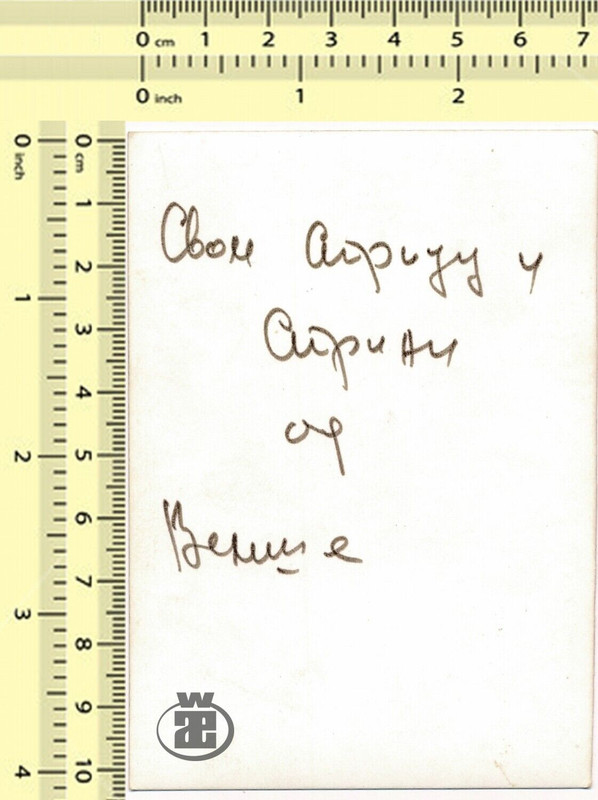 0 cm 1 2 3 4 5 6 7
0 inch 1 2
0 inch 1 2 3 4
0 cm 1 2 3 4 5 6 7 8 9 10
Свом Стрицу и
Стрини
од